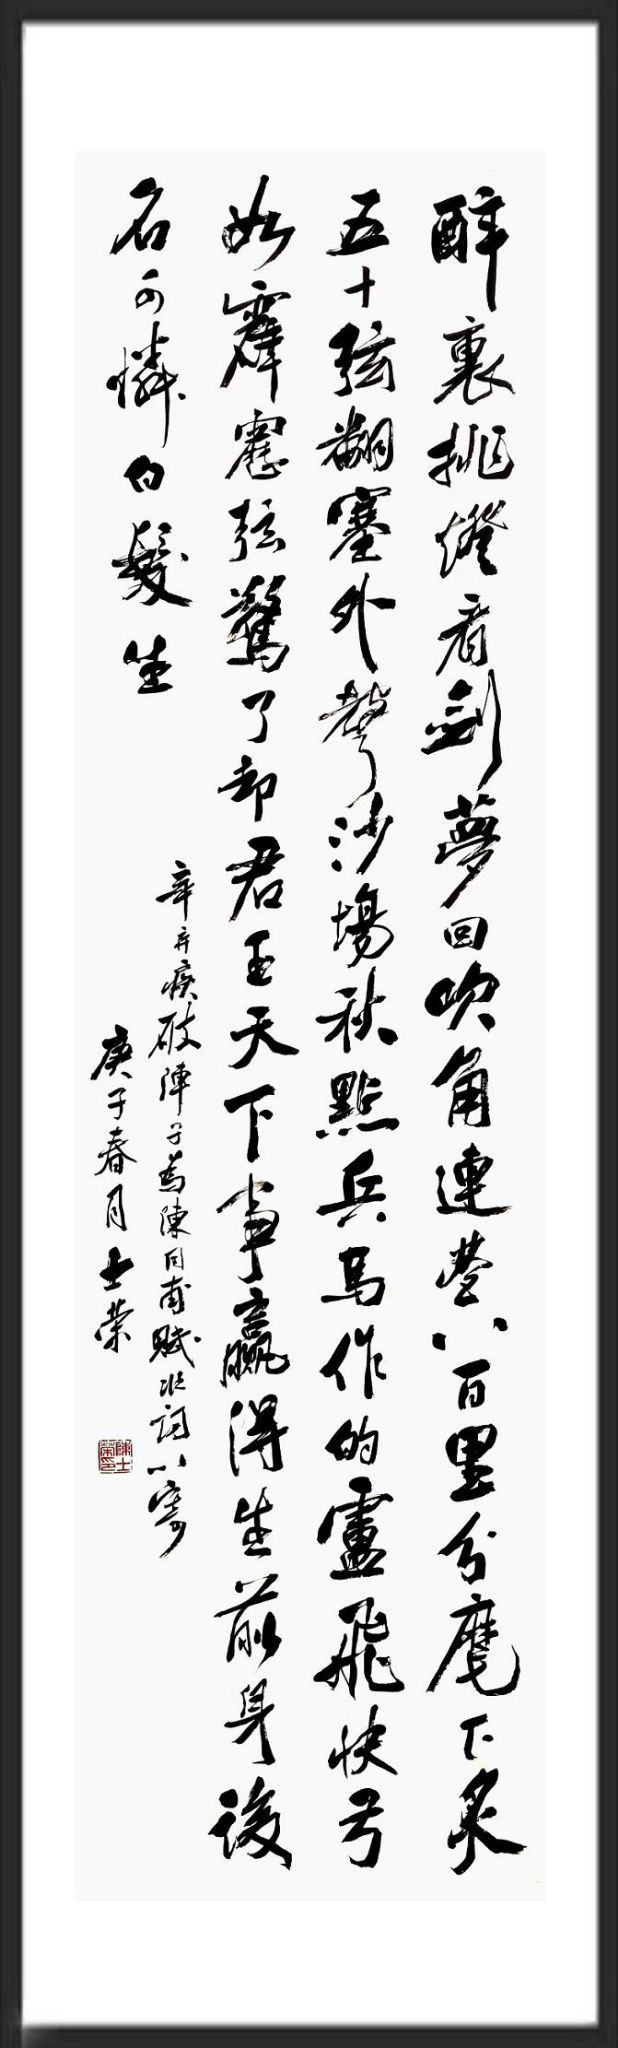 醉裏挑燈看劍夢回吹角連營八百里分麾下炙
五十弦翻塞外聲沙場秋點兵馬作的盧飛快弓
如霹靂弦驚了却君王天下事贏得生前身後
名可憐白髮生
辛弃疾破陣子為陳同甫賦壯詞以寄
庚子春月士榮
陳士榮印